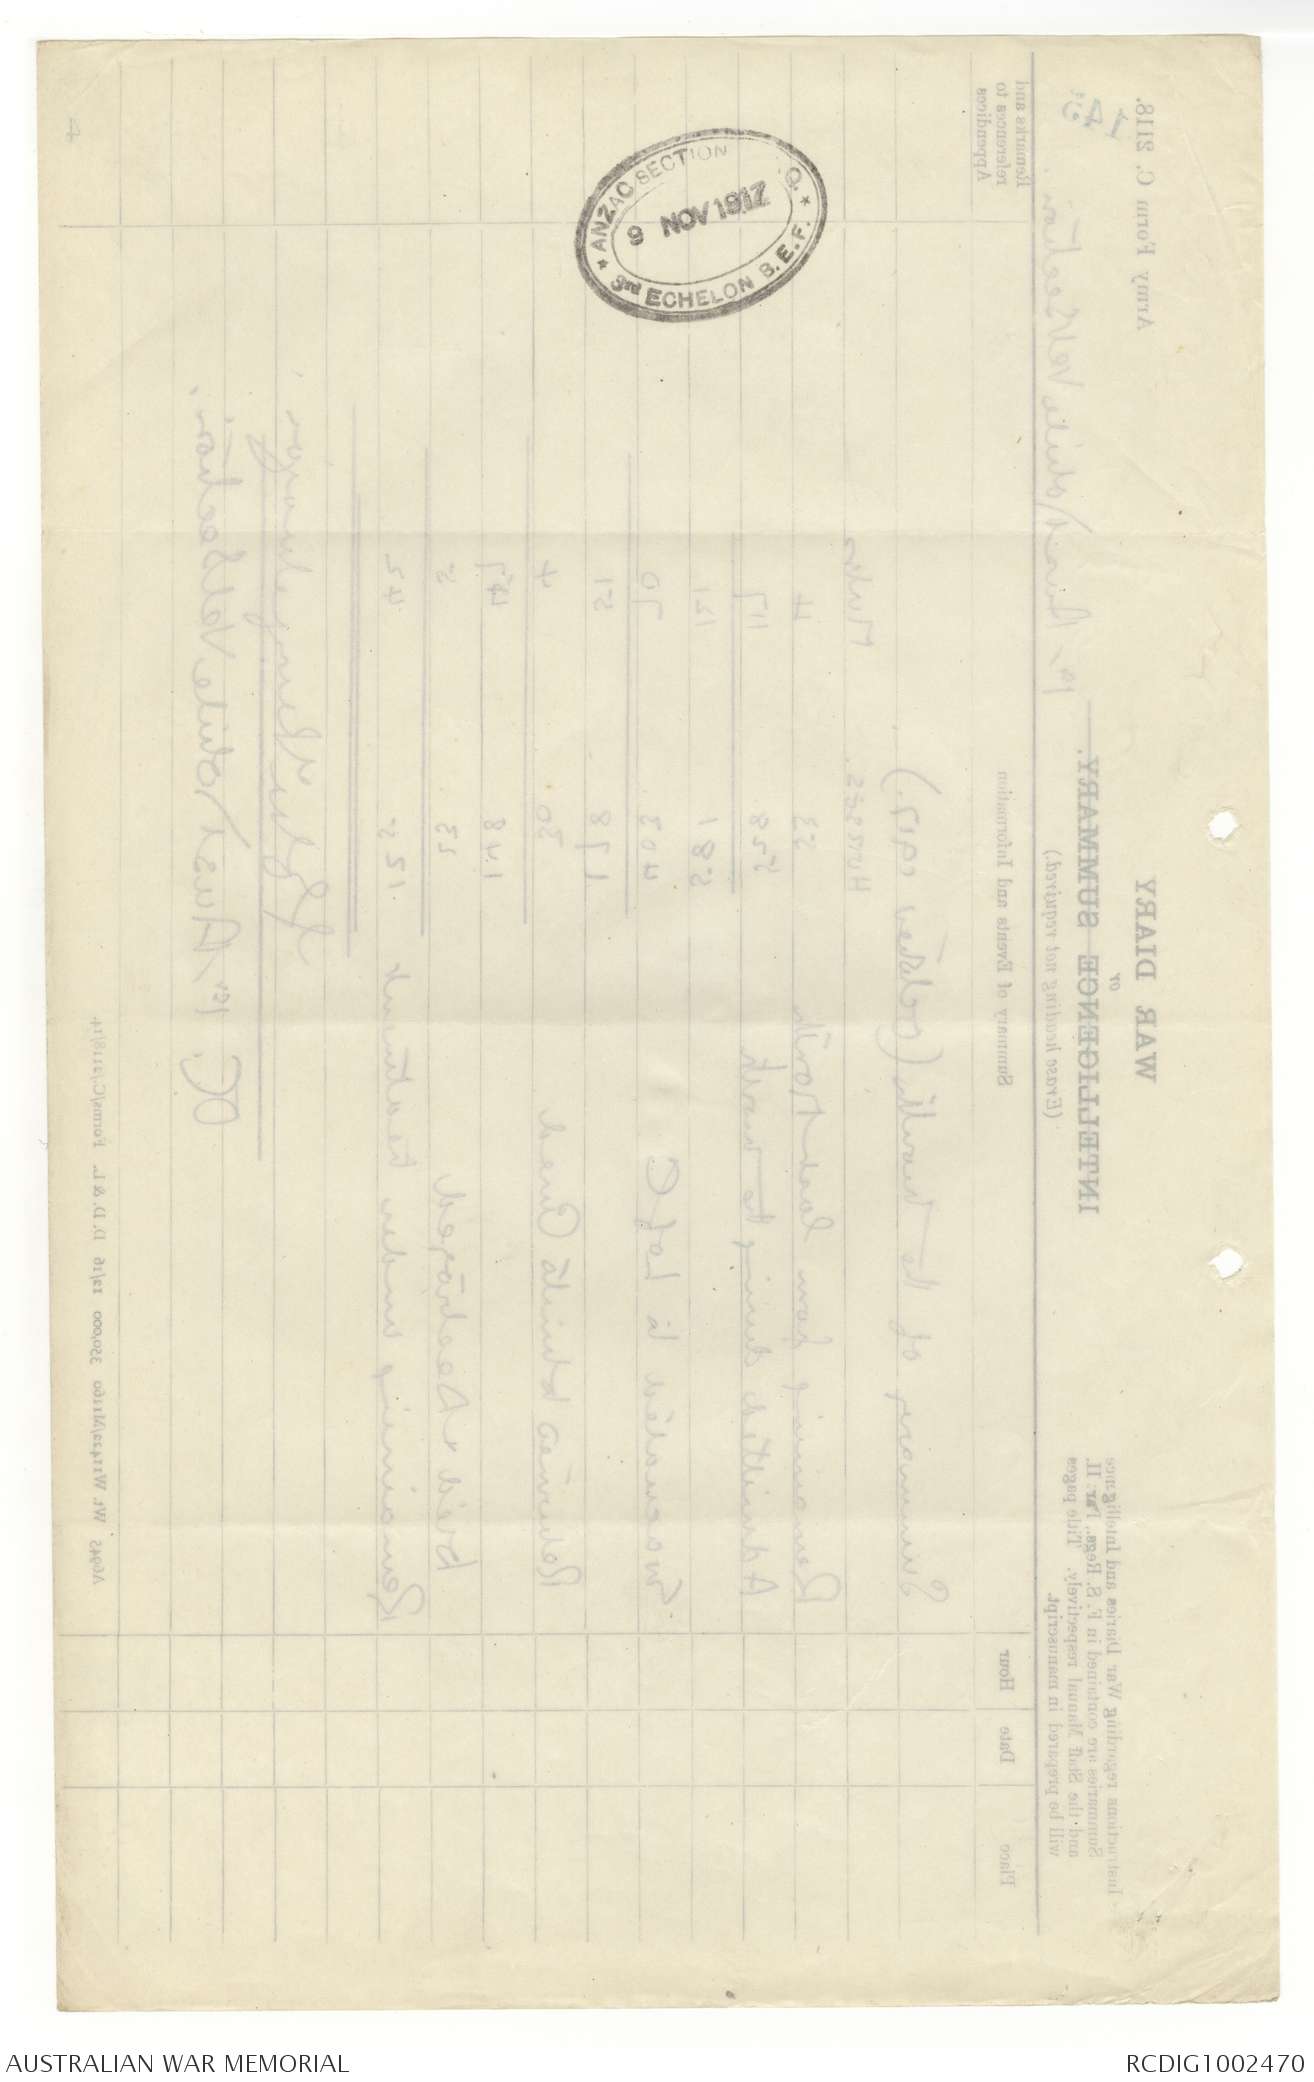 ANZAC SECTION
Q.
9 NOV 1917
3rd ECHELON B.E.F.
Army Form C. 2118.
WAR DIARY
or
INTELLIGENCE SUMMARY.
(Erase heading not required.)
Instructions regarding War Diaries and Intelligence
Summaries are contained in F. S. Regs., Part II.
and the Staff Manual respectively. Title pages
will be prepared in manuscript.
1st Aust Mobile Vet Section
Place
Date
Hour
Summary of Events and Information
Remarks and
references to
Appendices
Summary of the month (October 1917.)
Horses Mules
Remaining from last month 53 4
Admitted during the month 528 117
581 121
Evacuated to
403 70
178 51
30 4
148 47
Died & Destroyed 23 5
Remaining under treatment 125 42
OC. 1st Aust Mobile Vet Section.
A6945 Wt. W11422/M1160 350,000 12/16 D. D. & L. Forms/C./2118/14.
AUSTRALIAN WAR MEMORIAL
RCDIG1002470